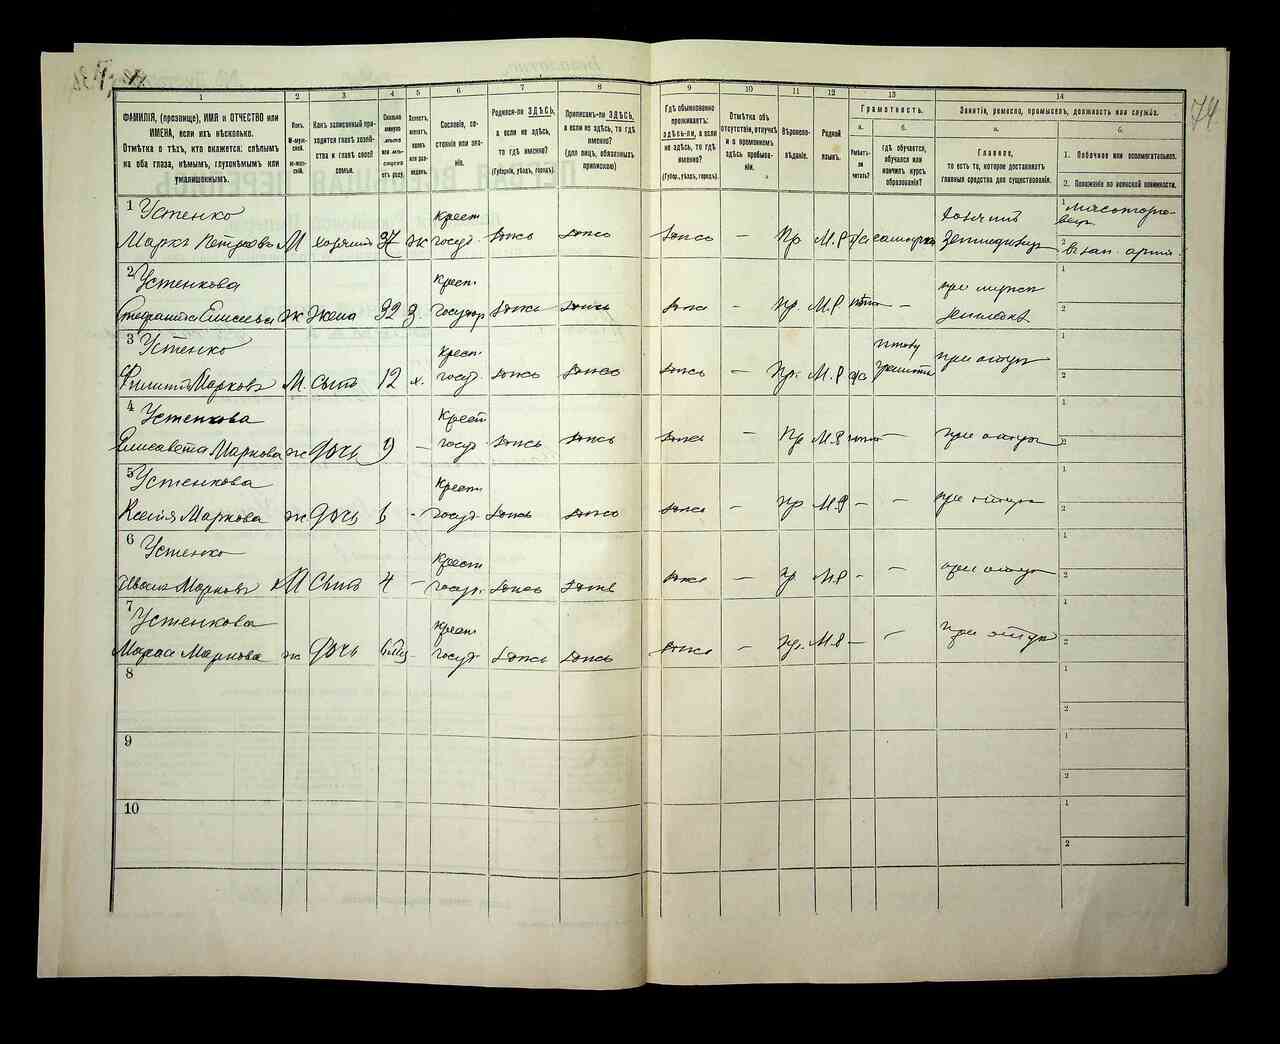 74
1 2 3 4 5 6 7 8 9 10 11 12 13 14
ФАМИЛІЯ, (прозвище), ИМЯ и ОТЧЕСТВО или
ИМЕНА, если ихъ нѣсколько.
Отмѣтка о тѣхъ, кто окажется: слѣпымъ
на оба глаза, нѣмымъ, глухонѣмымъ или
умалишеннымъ.
Полъ.
М-муж-
ской.
Ж-жен-
скій.
Какъ записанный при-
ходится главѣ хозяй-
ства и главѣ своей
семьи.
Сколько
минуло
лѣтъ
или мѣ-
сяцевъ
отъ роду.
Холостъ,
женатъ,
вдовъ
или раз-
веденъ.
Сословіе, со-
стояніе или зва-
ніе.
Родился-ли ЗДѢСЬ,
а если не здѣсь,
то гдѣ именно?
(Губернія, уѣздъ, городъ).
Приписанъ-ли ЗДѢСЬ,
а если не здѣсь, то гдѣ
именно?
(для лицъ, обязанныхъ
припискою)
Гдѣ обыкновенно
проживаетъ:
ЗДѢСЬ-ЛИ, а если
не здѣсь, то гдѣ
именно?
(Губер., уѣздъ, городъ).
Отмѣтка объ
отсутствіи, отлучкѣ
и о временномъ
здѣсь пребыва-
ніи.
Вѣроиспо-
вѣданіе.
Родной
языкъ.
Грамотность.
а. б.
Умѣетъ-
ли
читать?
Гдѣ обучается,
обучался или
кончилъ курсъ
образованія?
Занятіе, ремесло, промыселъ, должность или служба.
а. б.
Главное,
то есть то, которое доставляетъ
главныя средства для существованія.
1. Побочное или вспомогательное.
2. Положеніе по воинской повинности.
1 Устенко Крест хозяинъ 1
Марко Петровъ М хозяинъ 37 ж госуд. здѣсь здѣсь здѣсь — Пр М.Р земледѣлецъ 2
2 Устенкова Крест. при мужѣ 1
Елисеева ж жена 32 з здѣсь здѣсь — пр. М.Р — 2
3 Устенко Крест. 1
Филиппъ Марковъ М. сынъ 12 х. госуд. здѣсь здѣсь здѣсь — Пр. М.Р при отцѣ 2
4 Устенкова Крест 1
Елисавета Маркова ж дочь 9 — госуд. здѣсь здѣсь здѣсь — Пр М.Р — при отцѣ 2
5 Устенкова Крест. 1
Ксенія Маркова ж дочь 6 - госуд. здѣсь здѣсь здѣсь — пр М.Р — — при отцѣ 2
6 Устенко Крест 1
Иванъ Марковъ М сынъ 4 — госуд. здѣсь здѣсь здѣсь — пр М.Р — — при отцѣ 2
7 Устенкова Крест. 1
Марія Маркова ж дочь - госуд. здѣсь здѣсь здѣсь — пр. М.Р — — при отцѣ 2
8 1
2
9 1
2
10 1
2